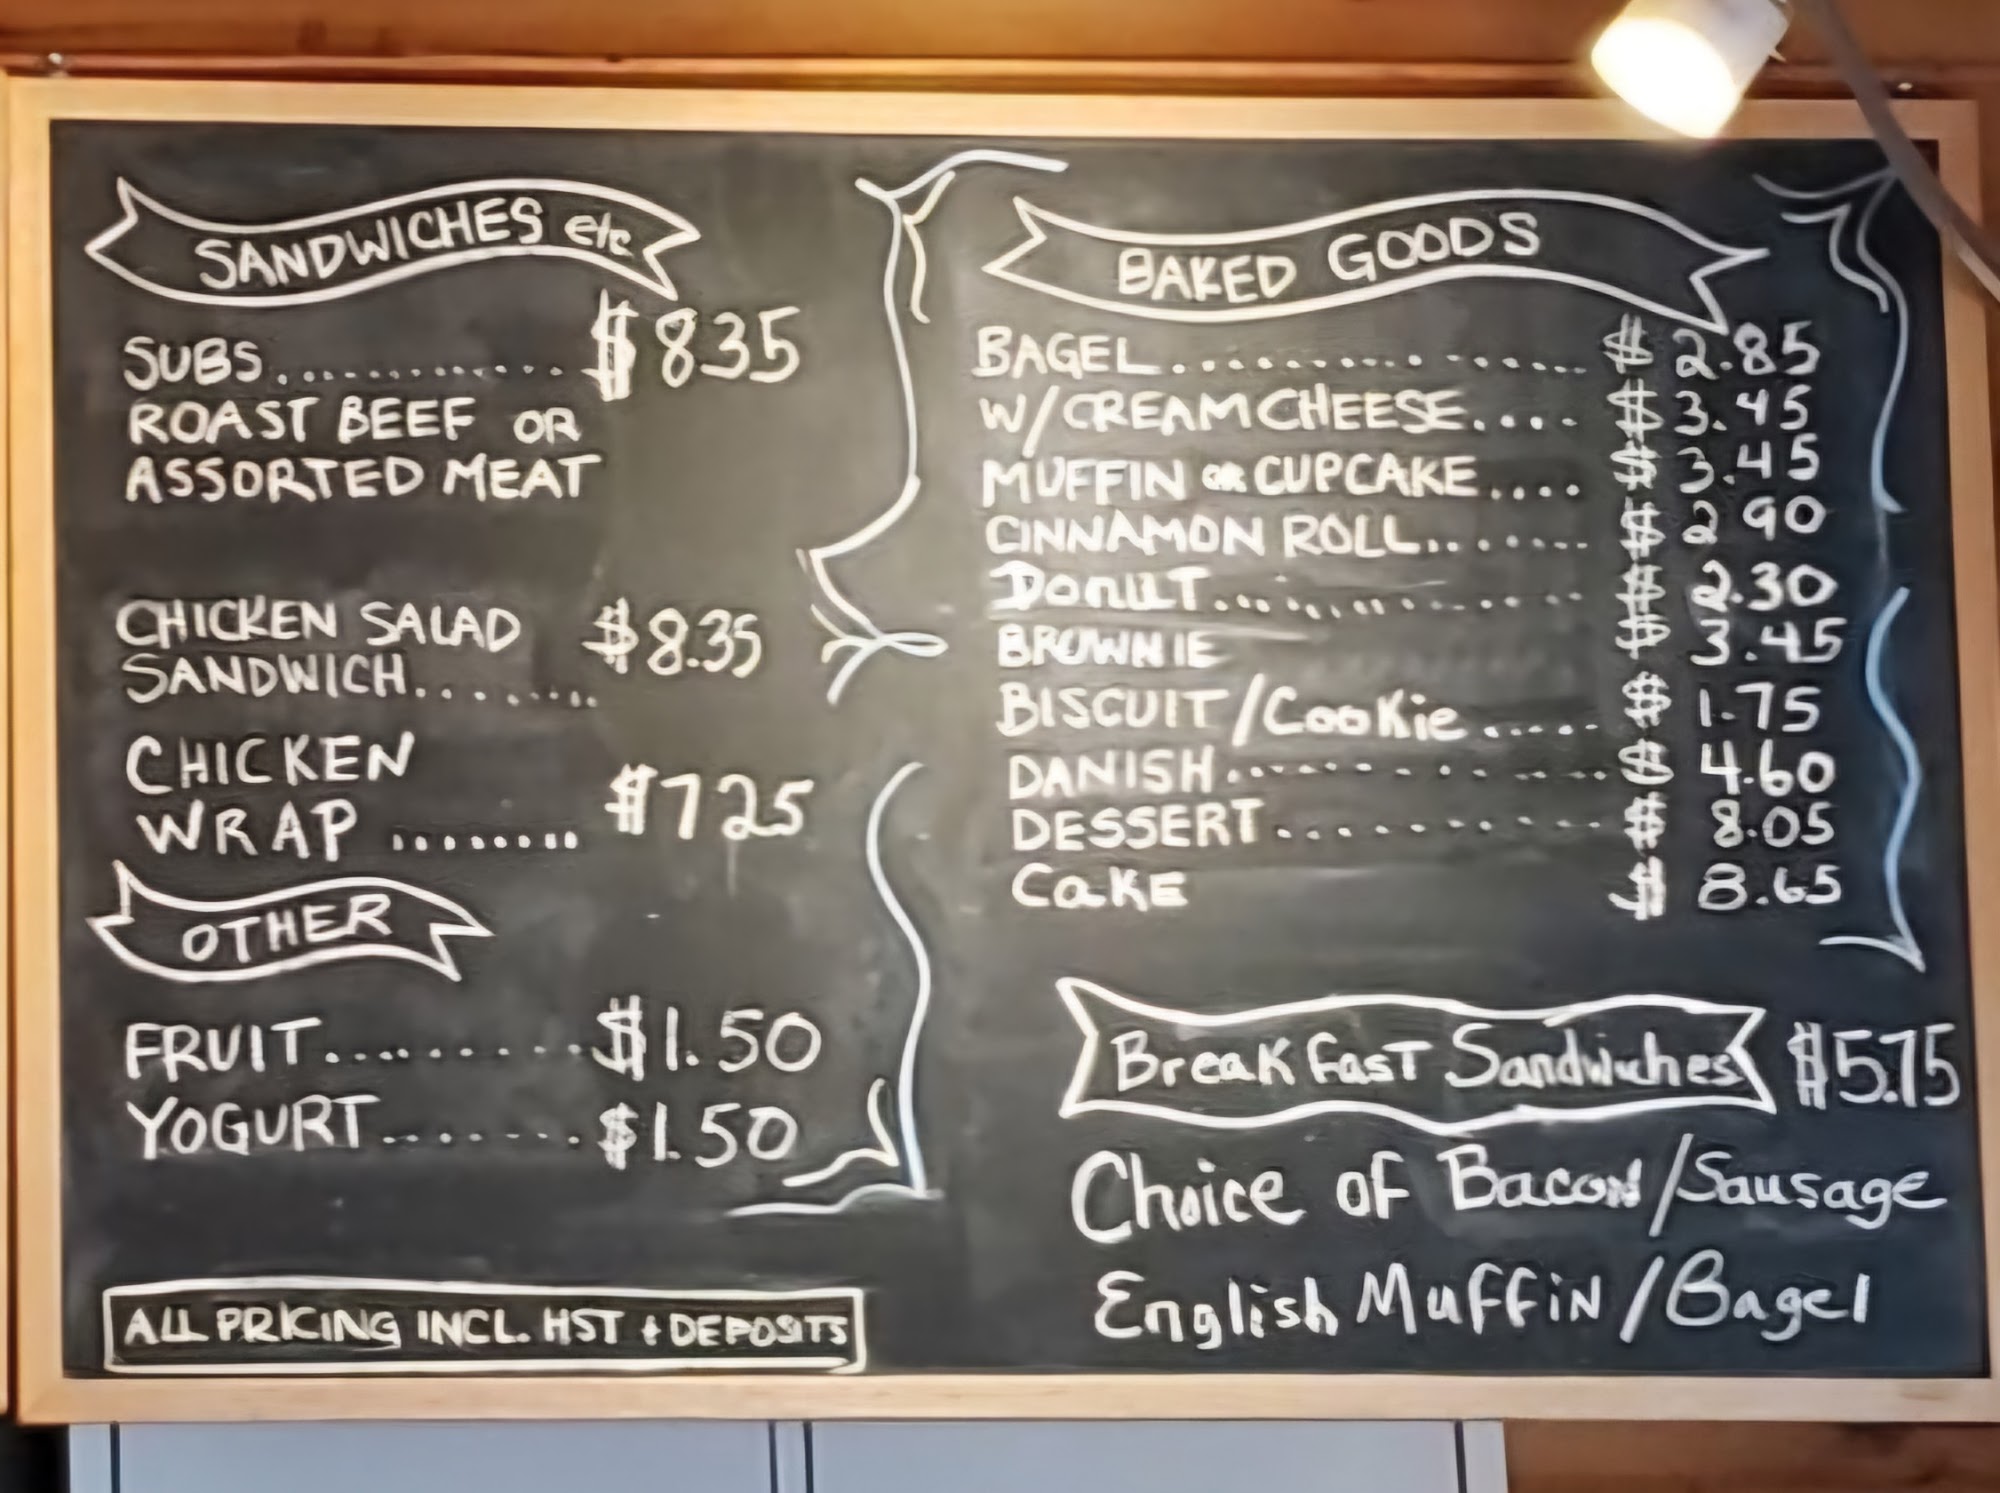 SANDWICHES etc
SUBS............. $835
ROAST BEEF OR
ASSORTED MEAT
CHICKEN SALAD $8.35
SANDWICH........
CHICKEN
WRAP ........ $725
OTHER
FRUIT.......... $1.50
YOGURT........ $1.50
ALL PRICING INCL. HST + DEPOSITS
BAGEL................ $ 2.85
W/CREAM CHEESE.... $3.45
MUFFIN OR CUPCAKE.... $3.45
CINNAMON ROLL....... $2 90
Donut............... $ 2.30
BROWNIE $ 3.45
BISCUIT/Cookie ..... $ 1.75
DANISH.............. $ 4.60
DESSERT........... $ 8.05
Cake $ 8.65
Breakfast Sandwiches $5.75
Choice of Bacon/Sausage
English Muffin/Bagel